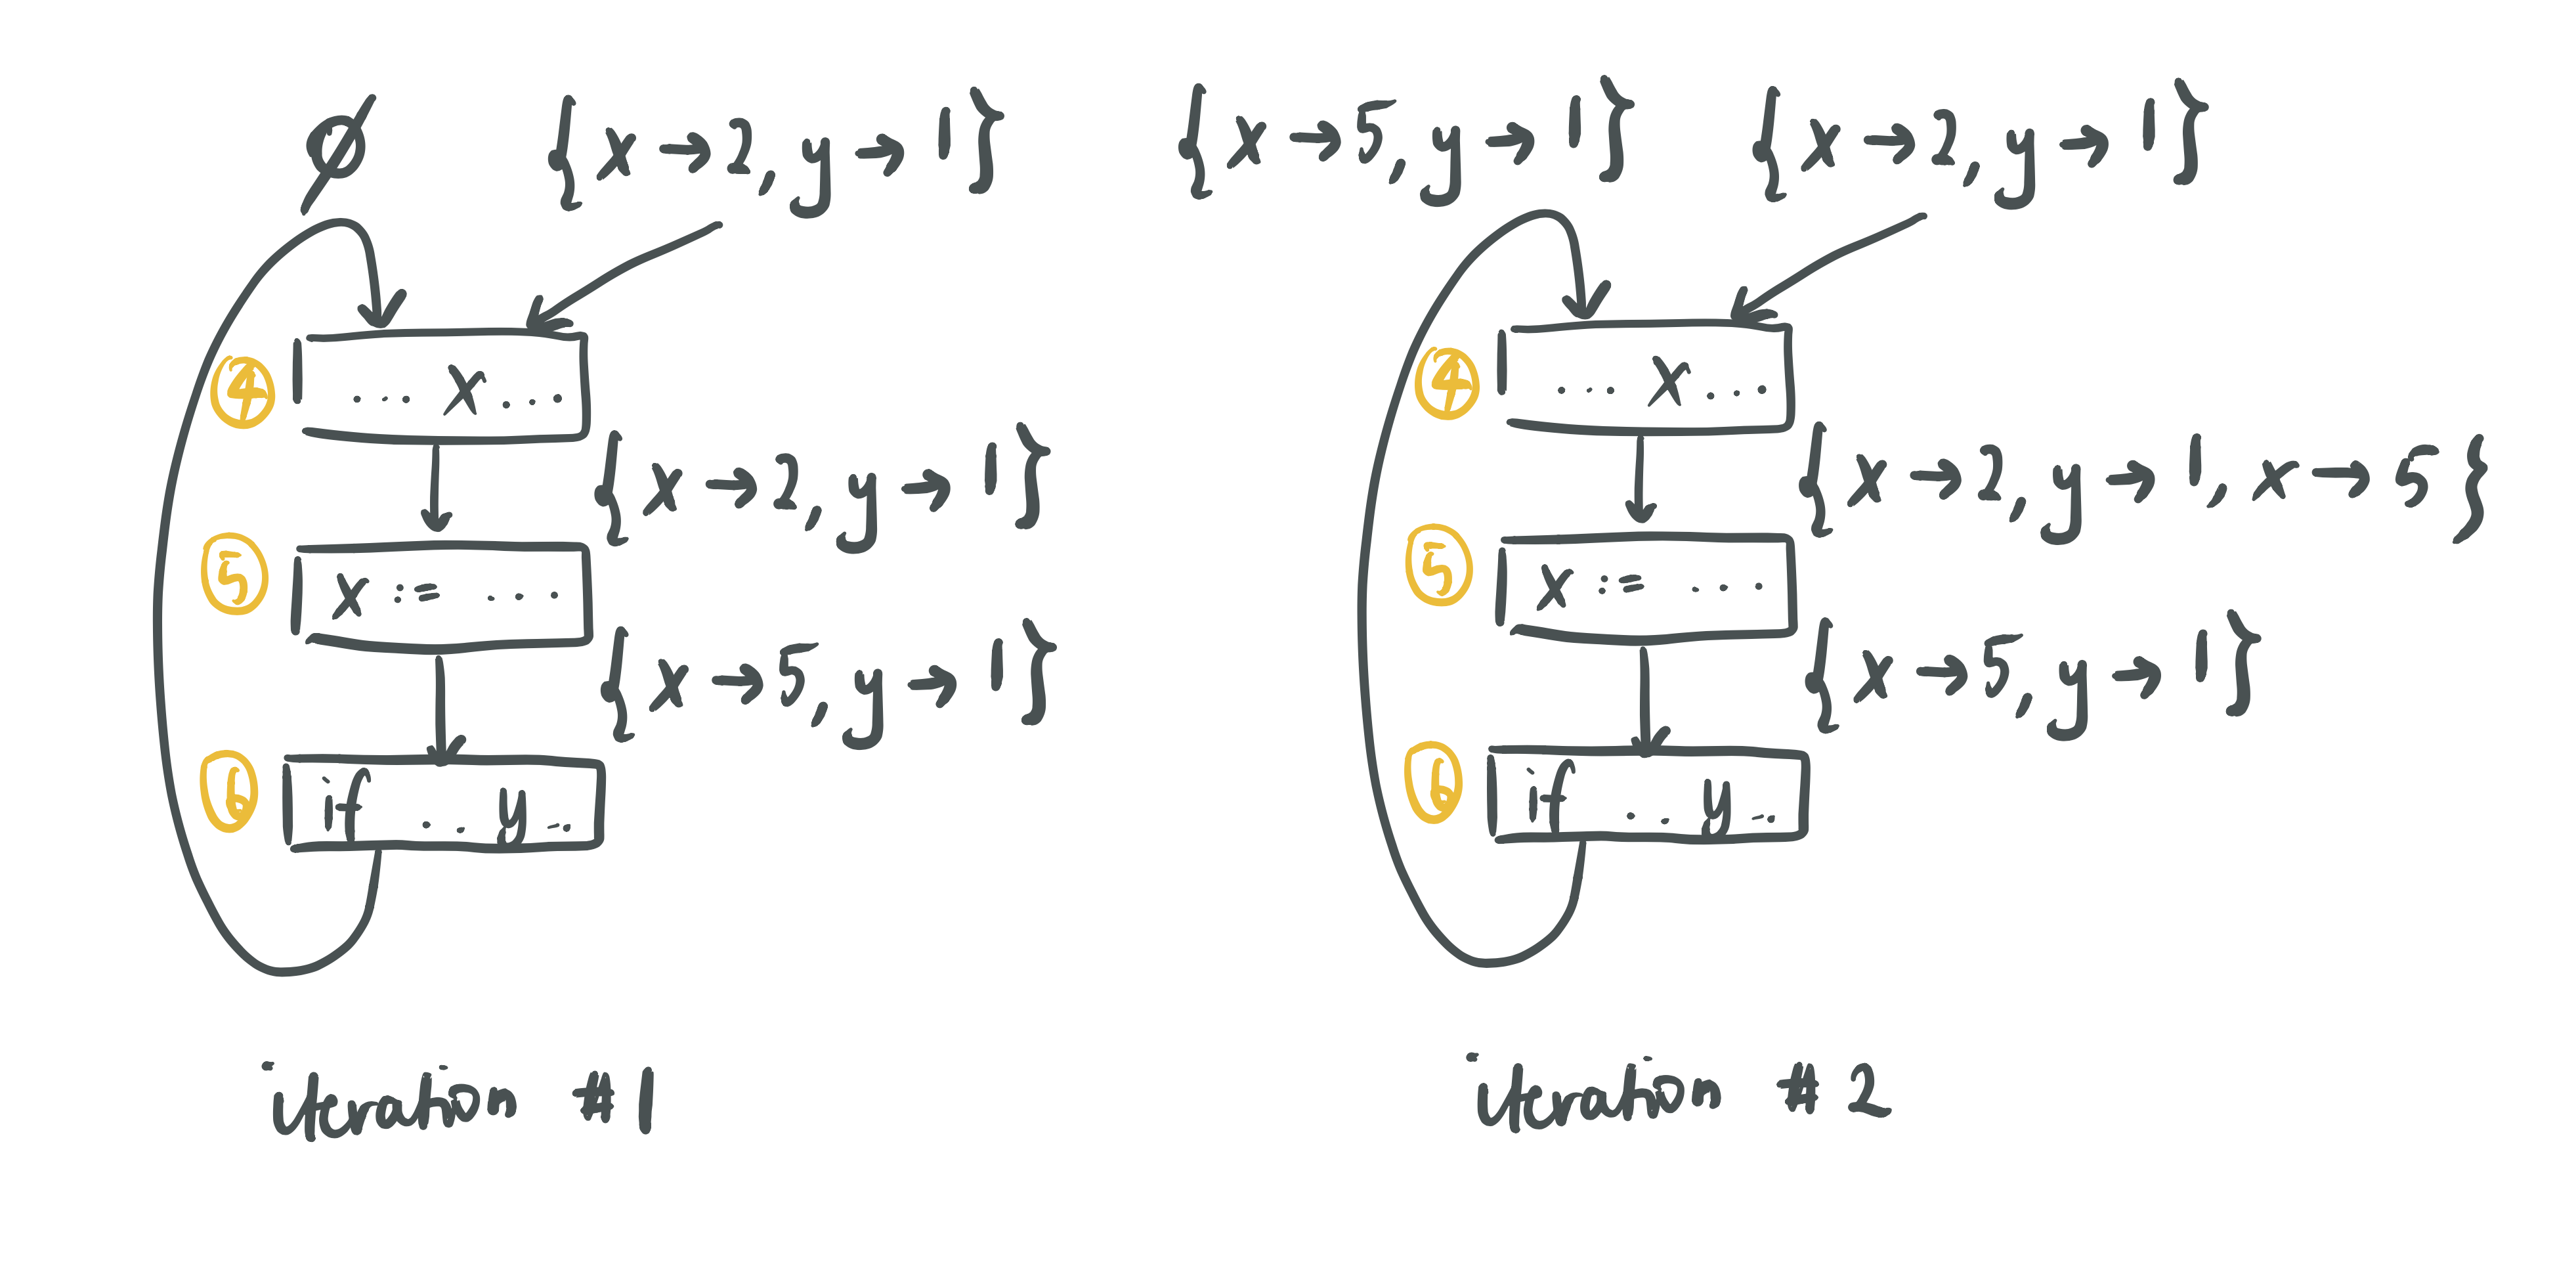 ∅ {x→2, y→1}
④ ... x ...
{x→2, y→1}
⑤ x := ...
{x→5, y→1}
⑥ if .. y ..
iteration #1
{x→5, y→1} {x→2, y→1}
④ ... x ...
{x→2, y→1, x→5}
⑤ x := ...
{x→5, y→1}
⑥ if .. y ..
iteration #2